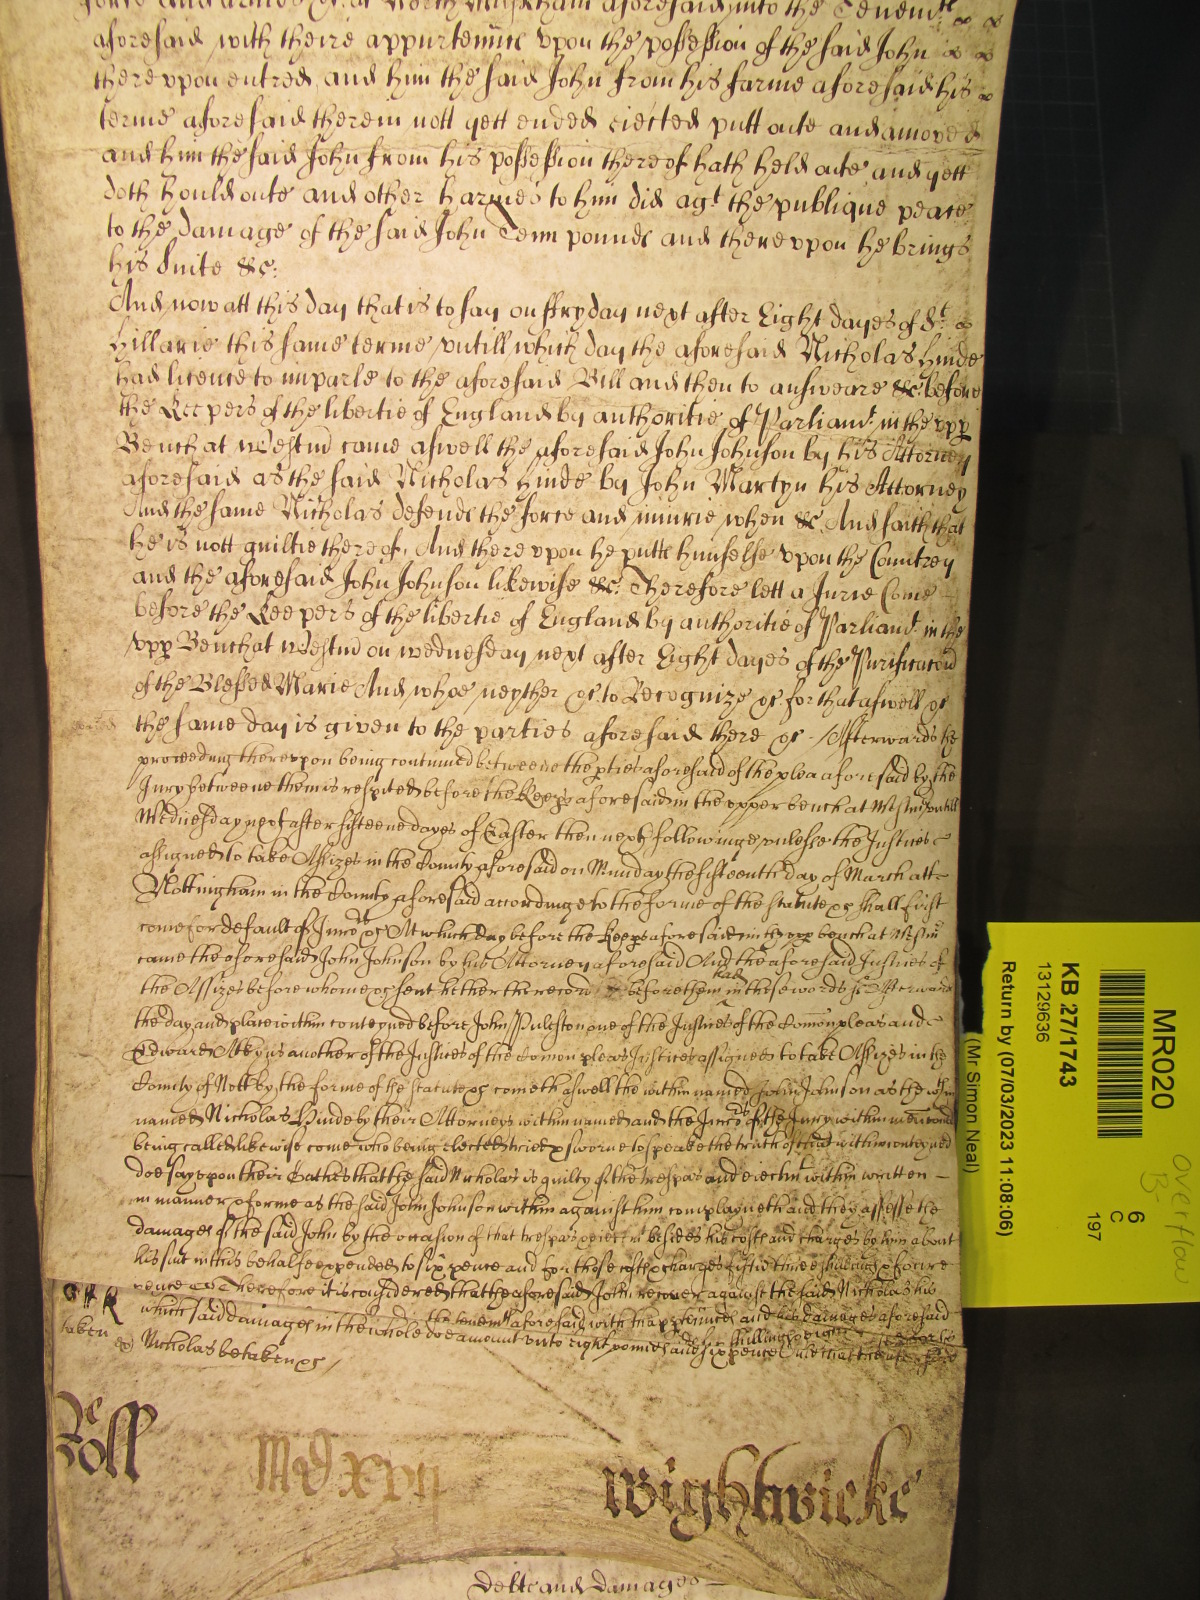 force and armes &c. at North Muskham aforesaid into the Tenemtes
aforesaid with theire appurtennc upon the possession of the said John
there upon entred and him the said John from his farme aforesaid his
terme aforesaid therein nott yett ended eiected putt oute and amoved
and him the said John from his possession thereof hath held oute and yett
doth hould oute and other harmes to him did agt the publique peace
to the damage of the said John Tenn pounds and thereupon he brings
his suite &c:
And now att this day that is to say on ffryday next after Eight dayes of St.
Hillarie this same terme untill which day the aforesaid Nicholas Hinde
had licence to imparle to the aforesaid Bill and then to answeare &c. before
the Keepers of the libertie of England by authoritie of Parliamt. in the upp
Bench at Westmd came aswell the aforesaid John Johnson by his Attorney
aforesaid as the said Nicholas Hinde by John Martyn his Attorney
And the same Nicholas defends the force and iniurie when &c And saith that
he is nott guiltie thereof. And thereupon he putts himselfe upon the Countrey
and the aforesaid John Johnson likewise &c: Therefore lett a Jurie Come
before the Keepers of the libertie of England by authoritie of Parliamt. in the
upp Bench at Westmd on wednesday next after Eight dayes of the Purificacon
of the Blessed Marie And whoe neyther &c. to Recognize &c. for that aswell &c
the same day is given to the parties aforesaid there &c. Afterwards the
proceeding thereupon being continued betweene the pties aforesaid of the plea aforesaid by the
Jury betweene them is respited before the Keeps aforesaid in the upper bench at Westm untill
Wednesday next after fifteene dayes of Easter then next followinge unlesse the Justices
assigned to take Assizes in the County aforesaid on Munday the fifteenth day of March att
Nottingham in the County aforesaid accordinge to the forme of the statute &c shall first
come for default of Jurors &c At which day before the Keeps aforesaid in the upp bench at Westm
came the aforesaid John Johnson by his Attorney aforesaid And the aforesaid Justices of
the Assizes before whome &c sent hether there record had before them in these words sc. Afterwards
the day and place within conteyned before John Puleston one of the Justices of the Comon pleas and
Edward Atkyns another of the Justices of the Comon pleas Justices assigned to take Assizes in the
County of Nott by the forme of the statute &c cometh aswell the within named John Johnson as the within
named Nicholas Hinde by their Attorneys within named and the Jurors of the Jury within menconed
being called likewise come who being elected tried & sworne to speake the truth of that within conteyned
doe say upon their Oathes that the said Nicholas is guilty of the trespas and eiectmt within written
in manner & forme as the said John Johnson within against him complayneth and they assesse the
damages of the said John by the occasion of that trespas & eiectmt besides his costs and charges by him about
his suit in this behalfe expended to six pence and for those costs & charges fiftie three shillings & foure
pence &c Therefore it is considered that the aforesaid John recover against the said Nicholas his
the tenemts aforesaid with the appurtennces and his damages aforesaid
which said damages in the whole doe amount unto eight pounds and six pence
taken
Nicholas be taken &c
Roll
Wightwicke
Debts and Damages
MR020
KB 27/1743
13129636
6
C
197
Return by (07/03/2023 11:08:06)
(Mr Simon Neal)
Overflow